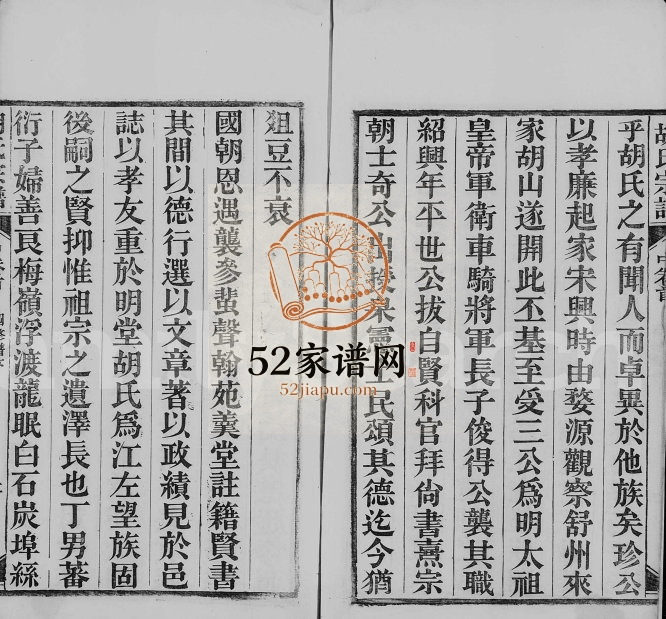 胡氏宗譜
乎胡氏之有聞人而卓異於他族矣珍公
以孝廉起家宋興時由婺源觀察舒州來
家胡山遂開此丕基至受三公爲明太祖
皇帝軍衛車騎將軍長子俊得公襲其職
紹興年平世公拔白賢科官拜尚書熹宗
朝士奇公出 士民頌其德迄今猶
俎豆不衰
國朝恩遇襲參蜚聲翰苑羹堂註籍賢書
其間以德行選以文章著以政績見於邑
誌以孝友重於明堂胡氏爲江左望族固
後嗣之賢抑惟祖宗之遺澤長也丁男蕃
衍子婦善良梅嶺浮渡龍眠白石炭埠絲
52家谱网
52jiapu.com